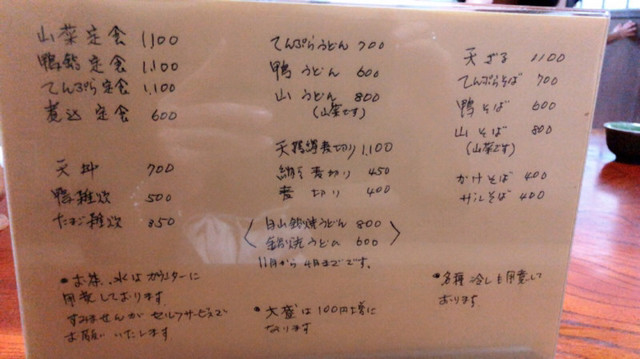 山菜定食 1,100
鴨鍋定食 1,100
てんぷら定食 1,100
煮込定食 600
天丼 700
鴨雑炊 500
たまご雑炊 350
てんぷらうどん 700
鴨うどん 600
山うどん 800
(山菜です)
天招縁麦切り 1,100
納豆麦切り 450
麦切り 400
白山鍋焼うどん 800
鍋焼うどん 600
11月から4月までです。
天ざる 1100
てんぷらそば 700
鴨そば 600
山そば 800
(山菜です)
かけそば 400
ザルそば 400
・お茶、水はカウンターに
用意しております。
すみませんがセルフサービスで
お願いいたします
・大盛は100円増に
なります
・各種冷しも用意して
おります。